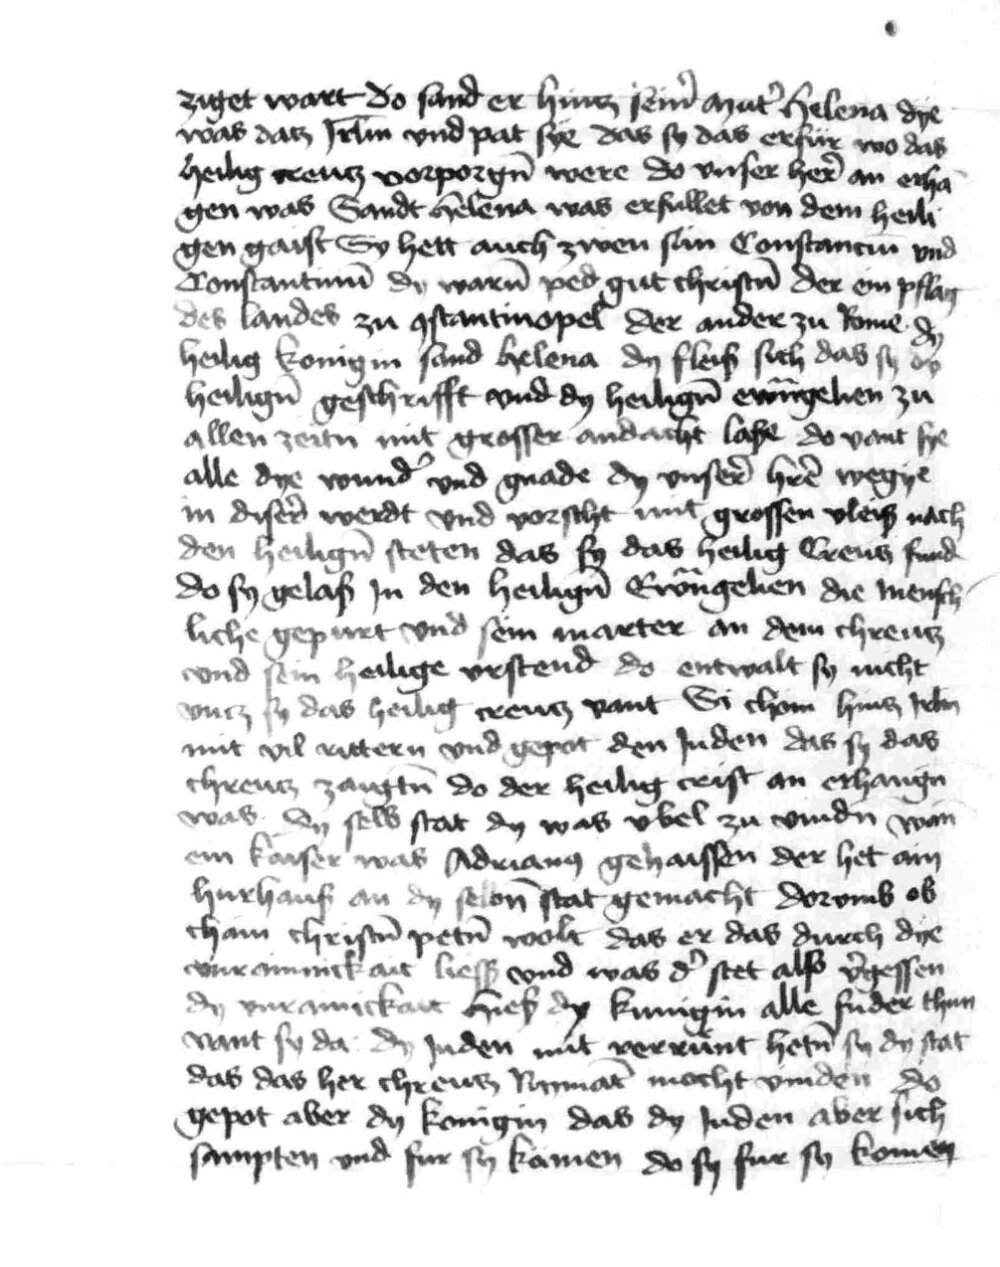 ziget wart do sand er hintz seinr mutr Helena dye
was datz Jrlm vnd pat sye das sy das erfür wo das
heilig creutz vorporgn were do vnser herr an erha
gen was Sandt Helena was erfullet von dem heili
gen gaist Sy hett auch zwen sun Constancium vnd
Constantinum dy warn ped gut christn der ein pflag
des landes zu 9stantinopel der ander zu Rome dy
heilig konigin sand helena dy fleiß sich das sy dy
heilign geschrifft vnd dy heilign ewangelien zu
allen zeitn mit grosser andacht lase do vant sye
alle dye wundr vnd gnade dy vnserr hre wegye
in diserr werdt vnd vorscht mit grossen vleiß nach
den heilign steten das sy das heilig Creutz fund
do sy gelaß Jn den heilign Ewangelien die mensch
liche gepurt vnd sein marter an dem chreutz
vnd sein heilige vrstend do entwalt sy nicht
vntz sy das heilig creutz vant Si chom hintz Jrlm
mit vil rittern vnd gepot den Juden das sy das
chreutz zaigtn do der heilig crist an erhangn
was. Dy selb stat dy was vbel zu vindn wan
ein kaiser was Adrianus gehaissen der het ain
hurhauß an dy selbn stat gemacht dorvmb ob
chain christn petn wolt das er das durch dye
vnrainnickait liess vnd was dr stet alß vrgessen
dy vnrainickait hieß dy kunigin alle suder thun
vant sy da dy Juden mit verrunt hetn sy dy stat
das das her chreutz nymat mocht vinden do
gepot aber dy konigin das dy Juden aber sich
sampten vnd fur sy kamen do sy fur sy komen